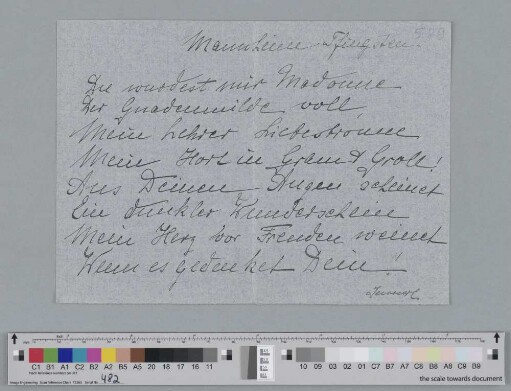 Mannheim Pfingsten.
Du wurdest mir Madonne
Der Gnadenmilde voll,
Mein hehrer Liebesbronne
Mein Hort in Gram & Groll!
Aus Deinen Augen scheinet
Ein dunkler Wunderschein
Mein Herz vor Freuden weinet
Wenn es gedenket Dein!!
C1 B1 A1 C2 B2 A2 B5 A5 20 18 17 16 11
10 09 03 02 01 C7 B7 A7 C8 B8 A8 C9 B9
the scale towards document
482